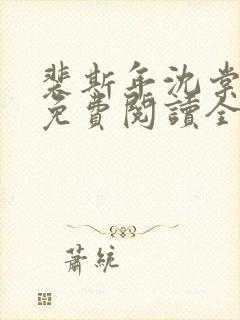 裴斯年沈棠
免費閱讀全
蕭統